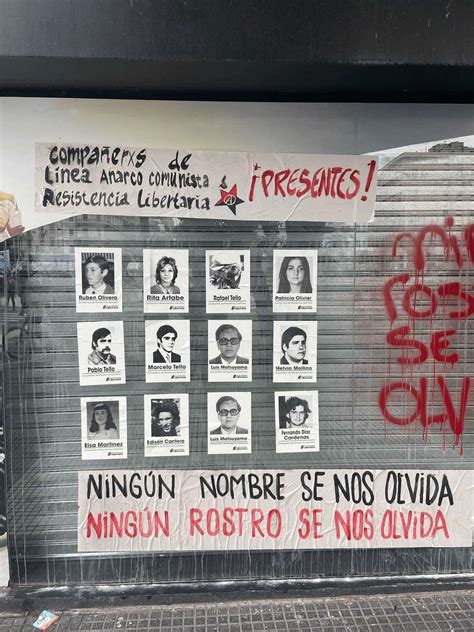 COMPAÑERXS DE
LINEA ANARCO COMUNISTA
RESISTENCIA LIBERTARIA
¡PRESENTES!
Ruben Olivera
Rita Artabe
Rafael Tello
Patricia Olivier
Pablo Tello
Marcelo Tello
Luis Matsuyama
Helvio Mellino
Elsa Martinez
Edison Cantero
Luis Matsuyama
Fernando Díaz
Cardenas
NINGÚN NOMBRE SE NOS OLVIDA
NINGÚN ROSTRO SE NOS OLVIDA
SE
OLV